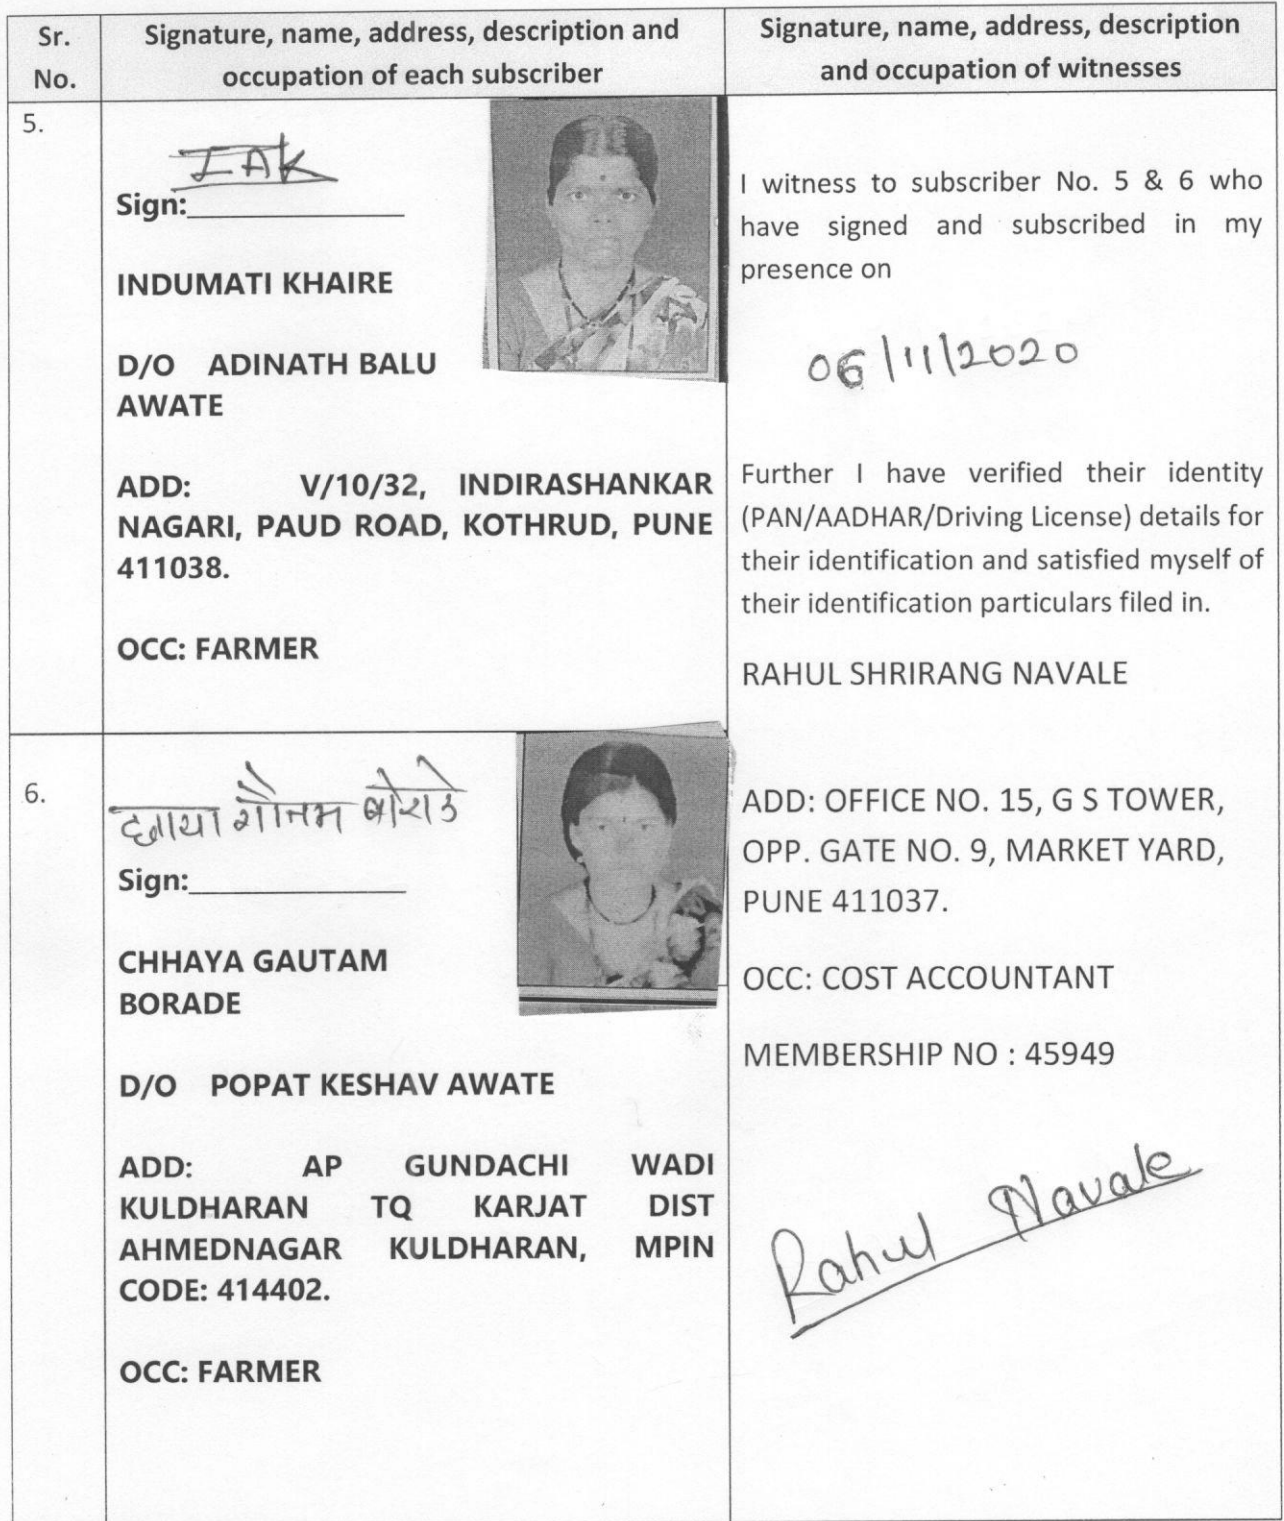 Sr. No.
Signature, name, address, description and
occupation of each subscriber
Signature, name, address, description
and occupation of witnesses
5.
IAK
Sign:_______________
INDUMATI KHAIRE
D/O ADINATH BALU
AWATE
ADD: V/10/32, INDIRASHANKAR
NAGARI, PAUD ROAD, KOTHRUD, PUNE
411038.
OCC: FARMER
I witness to subscriber No. 5 & 6 who
have signed and subscribed in my
presence on
06/11/2020
Further I have verified their identity
(PAN/AADHAR/Driving License) details for
their identification and satisfied myself of
their identification particulars filed in.
RAHUL SHRIRANG NAVALE
6.
छाया गौतम बोराडे
Sign:_______________
CHHAYA GAUTAM
BORADE
D/O POPAT KESHAV AWATE
ADD: AP GUNDACHI WADI
KULDHARAN TQ KARJAT DIST
AHMEDNAGAR KULDHARAN, MPIN
CODE: 414402.
OCC: FARMER
ADD: OFFICE NO. 15, G S TOWER,
OPP. GATE NO. 9, MARKET YARD,
PUNE 411037.
OCC: COST ACCOUNTANT
MEMBERSHIP NO : 45949
Rahul Navale